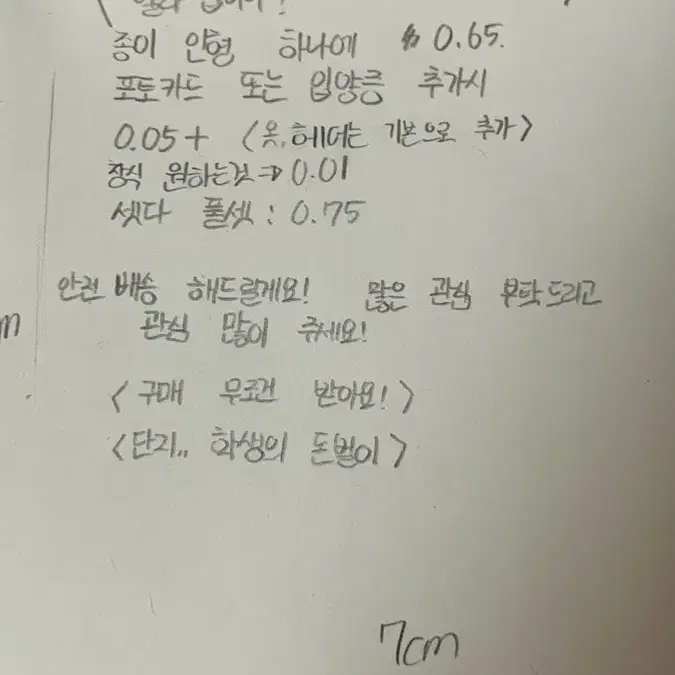 종이 인형 하나에 0.65.
포토카드 또는 입양증 추가시
0.05+ <옷, 헤어는 기본으로 추가>
장식 원하는것⇒0.01
셋다 풀셋 : 0.75
안전 배송 해드릴게요! 많은 관심 부탁드리고
m
관심 많이 주세요!
<구매 무조건 받아요!>
<단지.. 학생의 돈벌이>
7cm